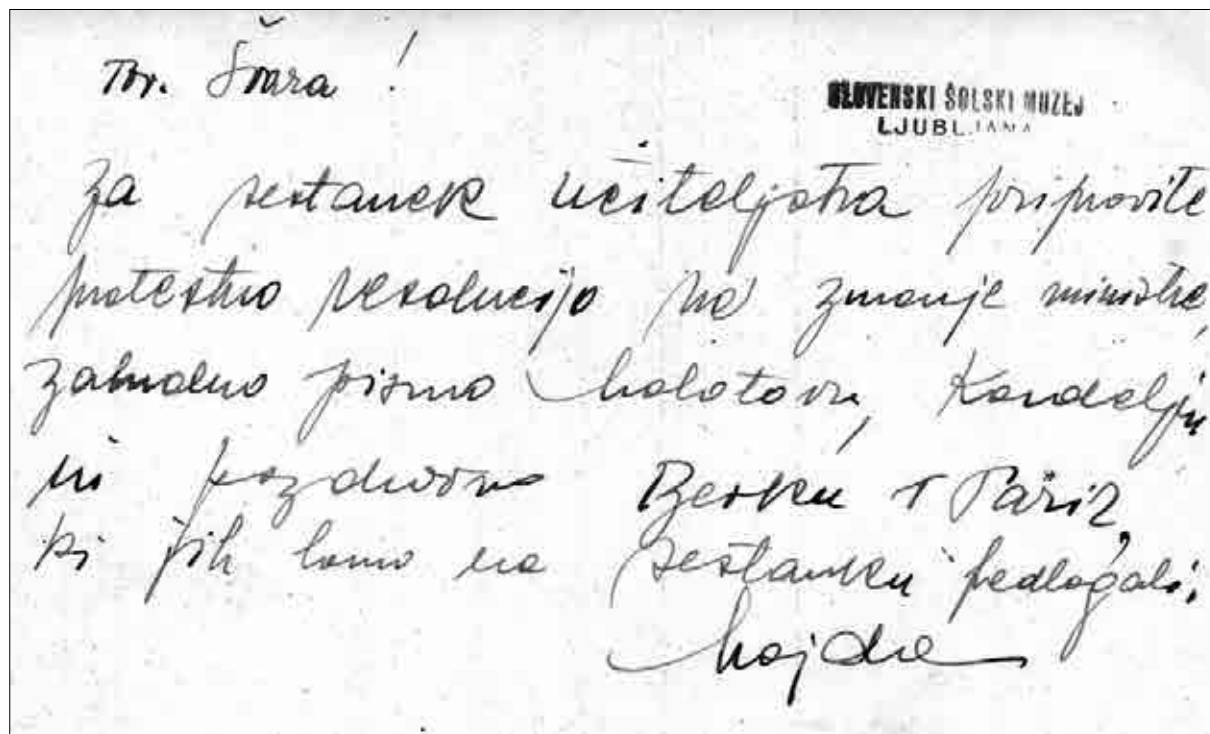 Tov. Švara!
SLOVENSKI ŠOLSKI MUZEJ
LJUBLJANA
Za sestanek učiteljstva pripravite
protestno resolucijo na zunanje ministre,
zahvalno pismo Molotovu, Kardelju
in pozdravno Berku v Pariz,
ki jih bomo na sestanku predlagali.
Majda